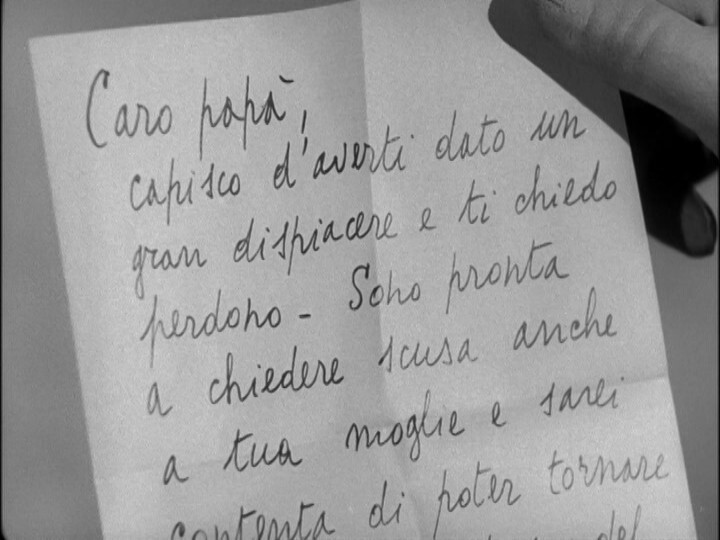 Caro papà,
capisco d'averti dato un
gran dispiacere e ti chiedo
perdono - Sono pronta
a chiedere scusa anche
a tua moglie e sarei
contenta di poter tornare
del